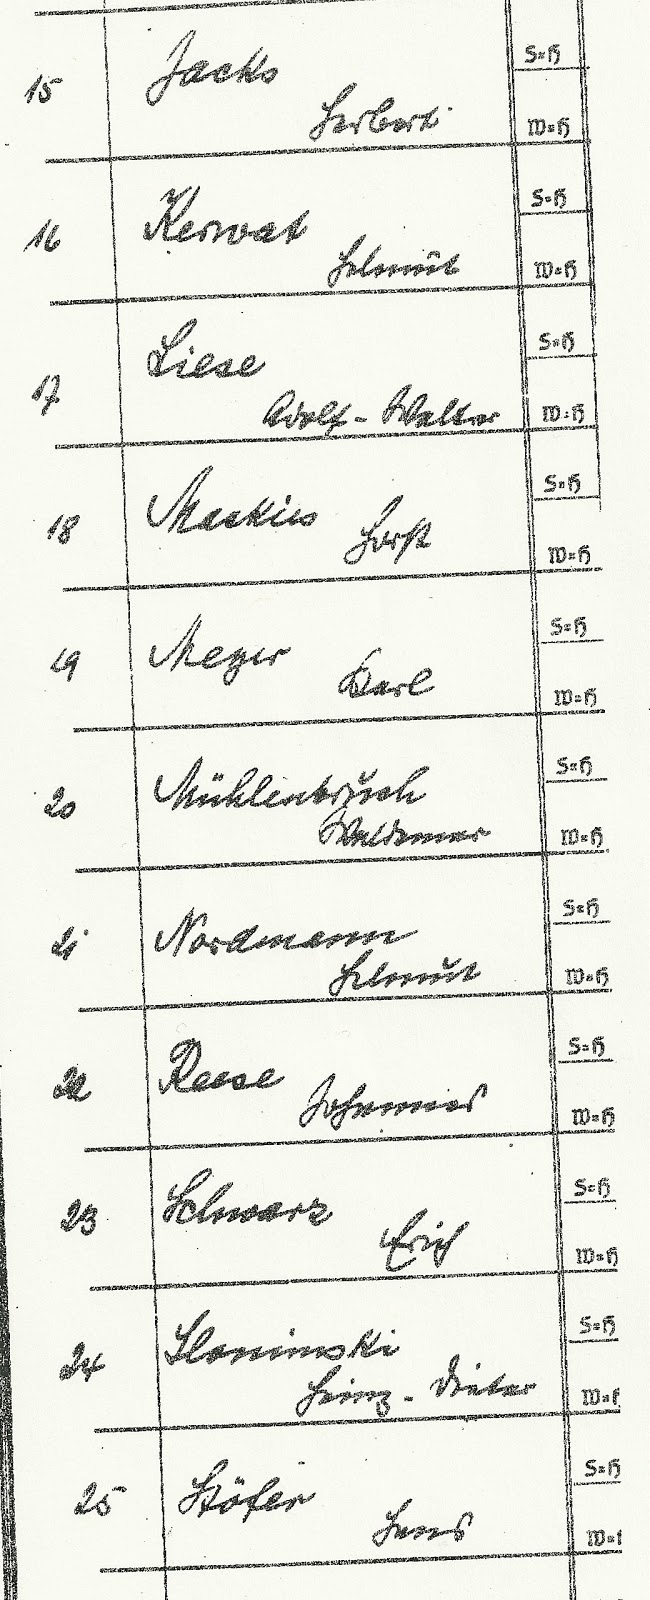 15 Jacks S=H
Herbert W=H
16 Kerwat S=H
Helmut W=H
17 Liese S=H
Adolf-Walter W=H
18 S=H
Horst W=H
19 Meyer S=H
Karl W=H
20 Mühlenbruch S=H
Waldemar W=H
21 Nordmann S=H
Helmut W=H
22 Reese S=H
Johannes W=H
23 Schwarz S=H
Erich W=H
24 Slonimski S=H
Heinz-Dieter
25 Stöfer S=H
Hans